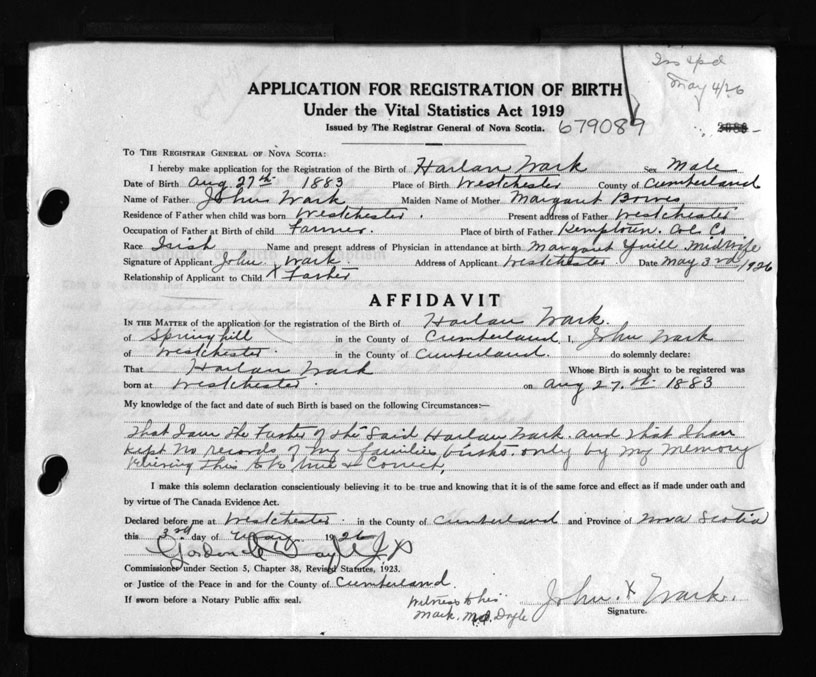 May 4/26
APPLICATION FOR REGISTRATION OF BIRTH
Under the Vital Statistics Act 1919
Issued by The Registrar General of Nova Scotia. 679089
TO THE REGISTRAR GENERAL OF NOVA SCOTIA:
I hereby make application for the Registration of the Birth of Harlan Wark Sex Male
Date of Birth Aug 27th 1883 Place of Birth Westchester County of Cumberland
Name of Father John Wark Maiden Name of Mother Margaret Bowes
Residence of Father when child was born Westchester. Present address of Father Westchester
Occupation of Father at Birth of child Farmer. Place of birth of Father Kemptown. Col. Co
Race Irish Name and present address of Physician in attendance at birth Margaret Yuill Midwife
Signature of Applicant John Wark. Address of Applicant Westchester Date May 3rd/1926
Relationship of Applicant to Child X Father
AFFIDAVIT
IN THE MATTER of the application for the registration of the Birth of Harlan Wark.
of Springhill in the County of Cumberland I, John Wark
of Westchester. in the County of Cumberland. do solemnly declare:
That Harlan Wark Whose Birth is sought to be registered was
born at Westchester. on Aug 27.th 1883
My knowledge of the fact and date of such Birth is based on the following Circumstances:—
That I am the Father of the Said Harlan Wark. and that I have
kept No records of My families births. only by My Memory
believing this to be true & Correct.
I make this solemn declaration conscientiously believing it to be true and knowing that it is of the same force and effect as if made under oath and
by virtue of The Canada Evidence Act.
Declared before me at Westchester. in the County of Cumberland and Province of Nova Scotia
this 3rd day of May. 1926
Gordon Doyle J P
Commissioner under Section 5, Chapter 38, Revised Statutes, 1923.
or Justice of the Peace in and for the County of Cumberland.
If sworn before a Notary Public affix seal.
Witness to his
Mark. M.A. Doyle
John X Wark.
Signature.